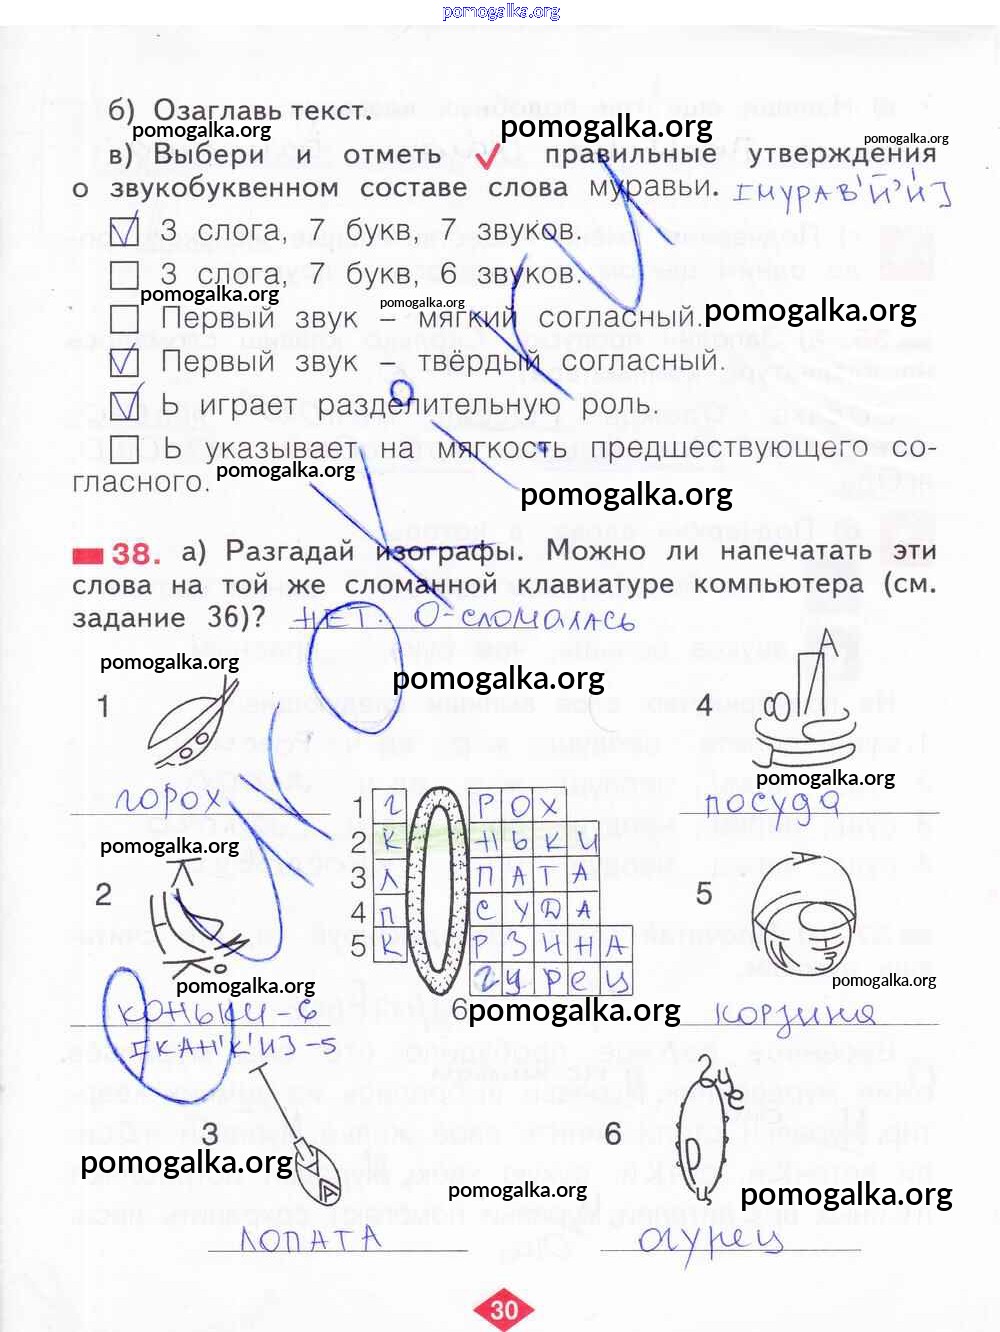 pomogalka.org
б) Озаглавь текст.
pomogalka.org pomogalka.org pomogalka.org
в) Выбери и отметь правильные утверждения
о звукобуквенном составе слова муравьи. [МУРАВ'Й'И]
3 слога, 7 букв, 7 звуков.
3 слога, 7 букв, 6 звуков.
pomogalka.org pomogalka.org pomogalka.org
Первый звук – мягкий согласный.
Первый звук – твёрдый согласный.
Ь играет разделительную роль.
Ь указывает на мягкость предшествующего со-
pomogalka.org
гласного.
pomogalka.org
38. а) Разгадай изографы. Можно ли напечатать эти
слова на той же сломанной клавиатуре компьютера (см.
задание 36)? НЕТ. О-СЛОМАЛАСЬ
pomogalka.org
pomogalka.org
1 4
pomogalka.org
ГОРОХ ПОСУДА
1 Г РОХ
pomogalka.org
2 К НЬКИ
3 Л ПАТА
4 П СУДА
5 К РЗИНА
6 ГУРЕЦ
2 5
pomogalka.org pomogalka.org
pomogalka.org
КОНЬКИ-6 КОРЗИНА
[КАН'К'И]-5
3 6
pomogalka.org
pomogalka.org pomogalka.org
ЛОПАТА ОГУРЕЦ
30